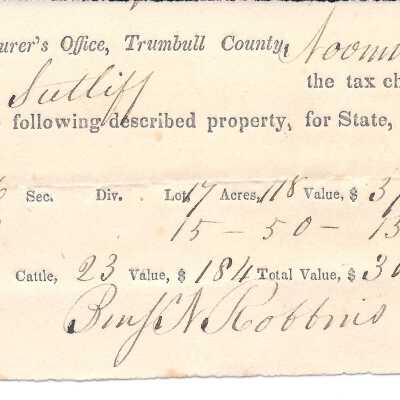 urer's Office, Trumbull County,
Sutliff the tax ch
following described property, for State,
Sec. Div. Lot, 17 Acres, 118 Value, $ 37
15 - 50 - 13
Cattle, 23 Value, $ 184 Total Value, $ 30
Benj N Robbins